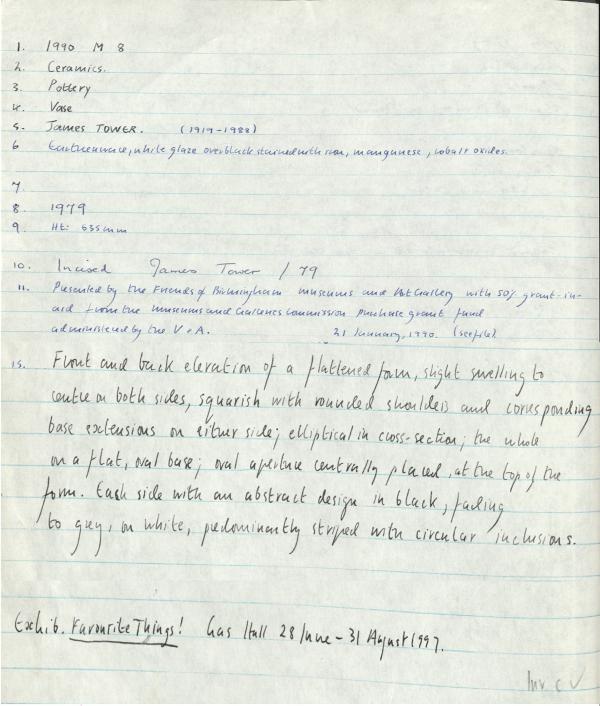 1. 1990 M 8
2. Ceramics.
3. Pottery
4. Vase
5. James TOWER. (1919-1988)
6 Earthenware, white glaze over black stained with iron, manganese, cobalt oxides.
7.
8. 1979
9. Ht: 535mm
10. Incised James Tower / 79
11. Presented by the Friends of Birmingham museums and Art Gallery with 50% grant-in-
aid from the museums and Galleries Commission purchase grant fund
administered by the V & A. 21 January, 1990. (see file)
15. Front and back elevation of a flattened form, slight swelling to
centre on both sides, squarish with rounded shoulders and corresponding
base extensions on either side; elliptical in cross-section; the whole
on a flat, oval base; oval aperture centrally placed, at the top of the
form. Each side with an abstract design in black, fading
to grey, on white, predominantly striped with circular inclusions.
Exhib. Favourite Things! Gas Hall 28 June - 31 August 1997.
Inv c ✓